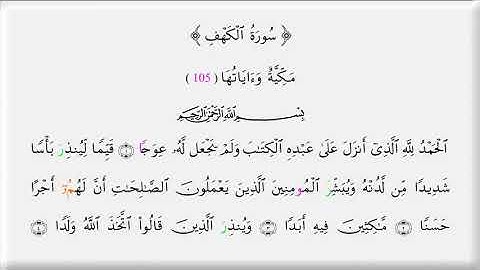 ﴿ سُورَةُ الْكَهْفِ ﴾
مَكِّيَّةٌ وَءَايَاتُهَا ( 105 )
بِسْمِ اللَّهِ الرَّحْمَٰنِ الرَّحِيمِ
الْحَمْدُ لِلَّهِ الَّذِىٓ أَنزَلَ عَلَىٰ عَبْدِهِ الْكِتَٰبَ وَلَمْ يَجْعَل لَّهُۥ عِوَجًا ١ قَيِّمًا لِّيُنذِرَ بَأْسًا
شَدِيدًا مِّن لَّدُنْهُ وَيُبَشِّرَ الْمُومِنِينَ الَّذِينَ يَعْمَلُونَ الصَّٰلِحَٰتِ أَنَّ لَهُمُۥٓ أَجْرًا
حَسَنًا ٢ مَّٰكِثِينَ فِيهِ أَبَدًا ٣ وَيُنذِرَ الَّذِينَ قَالُوا۟ اتَّخَذَ اللَّهُ وَلَدًا ٤